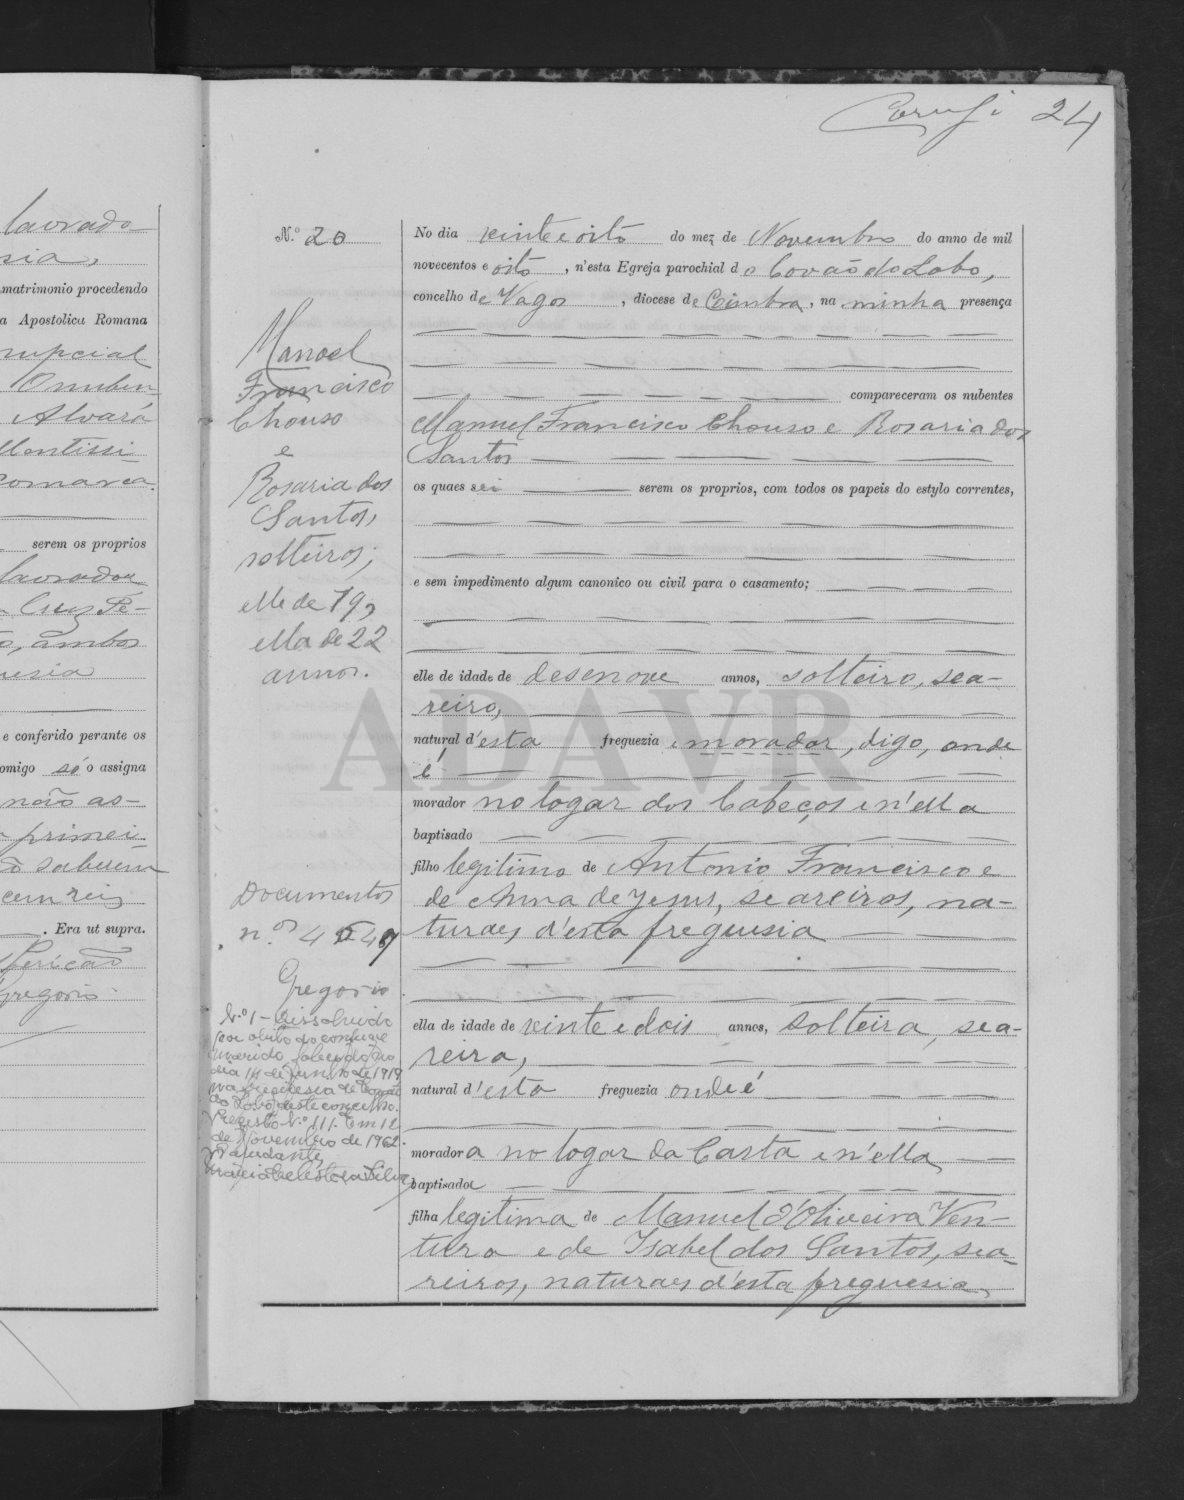 24
lavrado
sia,
matrimonio procedendo
a Apostolica Romana
nupcial
O nuben
Alvará
comarca
serem os proprios
lavrador
Cruz Pe-
o, ambos
uesia
e conferido perante os
omigo só o assigna
não as-
primei
o saberem
cem reis
. Era ut supra.
Gregorio
N.º 20
Manoel
Francisco
Chouso
e
Rosaria dos
Santos,
solteiros;
elle de 19,
ella de 22
annos.
Documentos
n.os 45 49
Gregorio
N.º 1 - Dissolvido
por obito do conjuge
marido, falecido no
dia 14 de Junho de 1919
na freguesia de Covão
do Lobo, deste concelho.
Registo N.º 111. Em 12
de Novembro de 1962.
O ajudante,
Maria Celeste da Silva
No dia vinte e oito do mez de Novembro do anno de mil
novecentos e oito, n'esta Egreja parochial do Covão do Lobo,
concelho de Vagos, diocese de Coimbra, na minha presença
compareceram os nubentes
Manuel Francisco Chouso e Rosaria dos
Santos
os quaes sei serem os proprios, com todos os papeis do estylo correntes,
e sem impedimento algum canonico ou civil para o casamento;
elle de idade de desenove annos, solteiro, sea-
reiro,
natural d'esta freguezia e morador, digo, onde
é
morador no logar dos Cabeços e n'ella
baptisado
filho legitimo de Antonio Francisco e
de Anna de Jesus, seareiros, na-
turaes d'esta freguesia
ella de idade de vinte e dois annos, solteira, sea-
reira,
natural d'esta freguezia onde é
moradora no logar da Carta e n'ella
baptisada
filha legitima de Manuel d'Oliveira Ven-
tura e de Isabel dos Santos, sea-
reiros, naturaes d'esta freguesia,
ADAVR